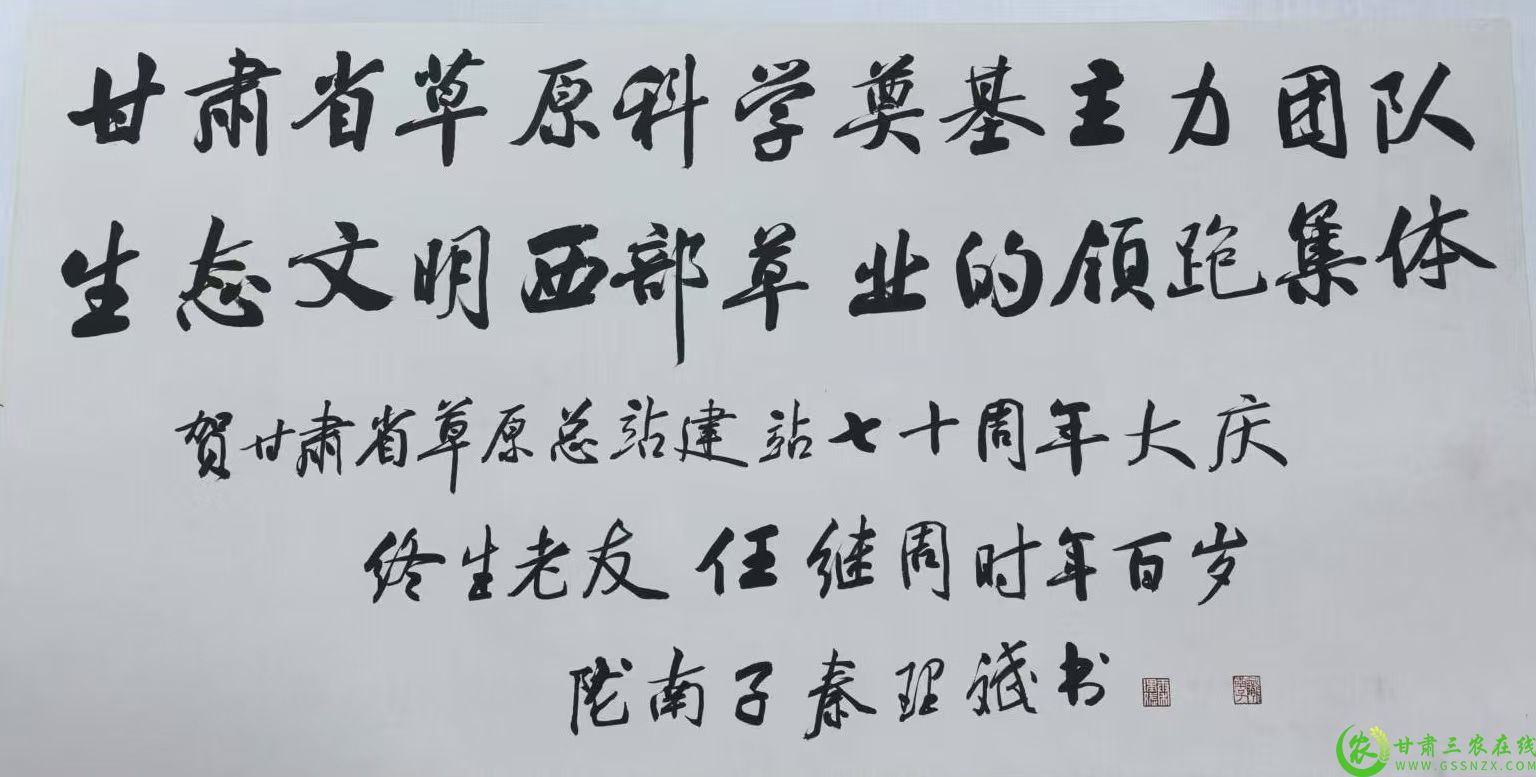 甘肃省草原科学奠基主力团队
生态文明西部草业的领跑集体
贺甘肃省草原总站建站七十周年大庆
终生老友 任继周时年百岁
陇南子秦理斌书
甘肃三农在线
WWW.GSSNZX.COM